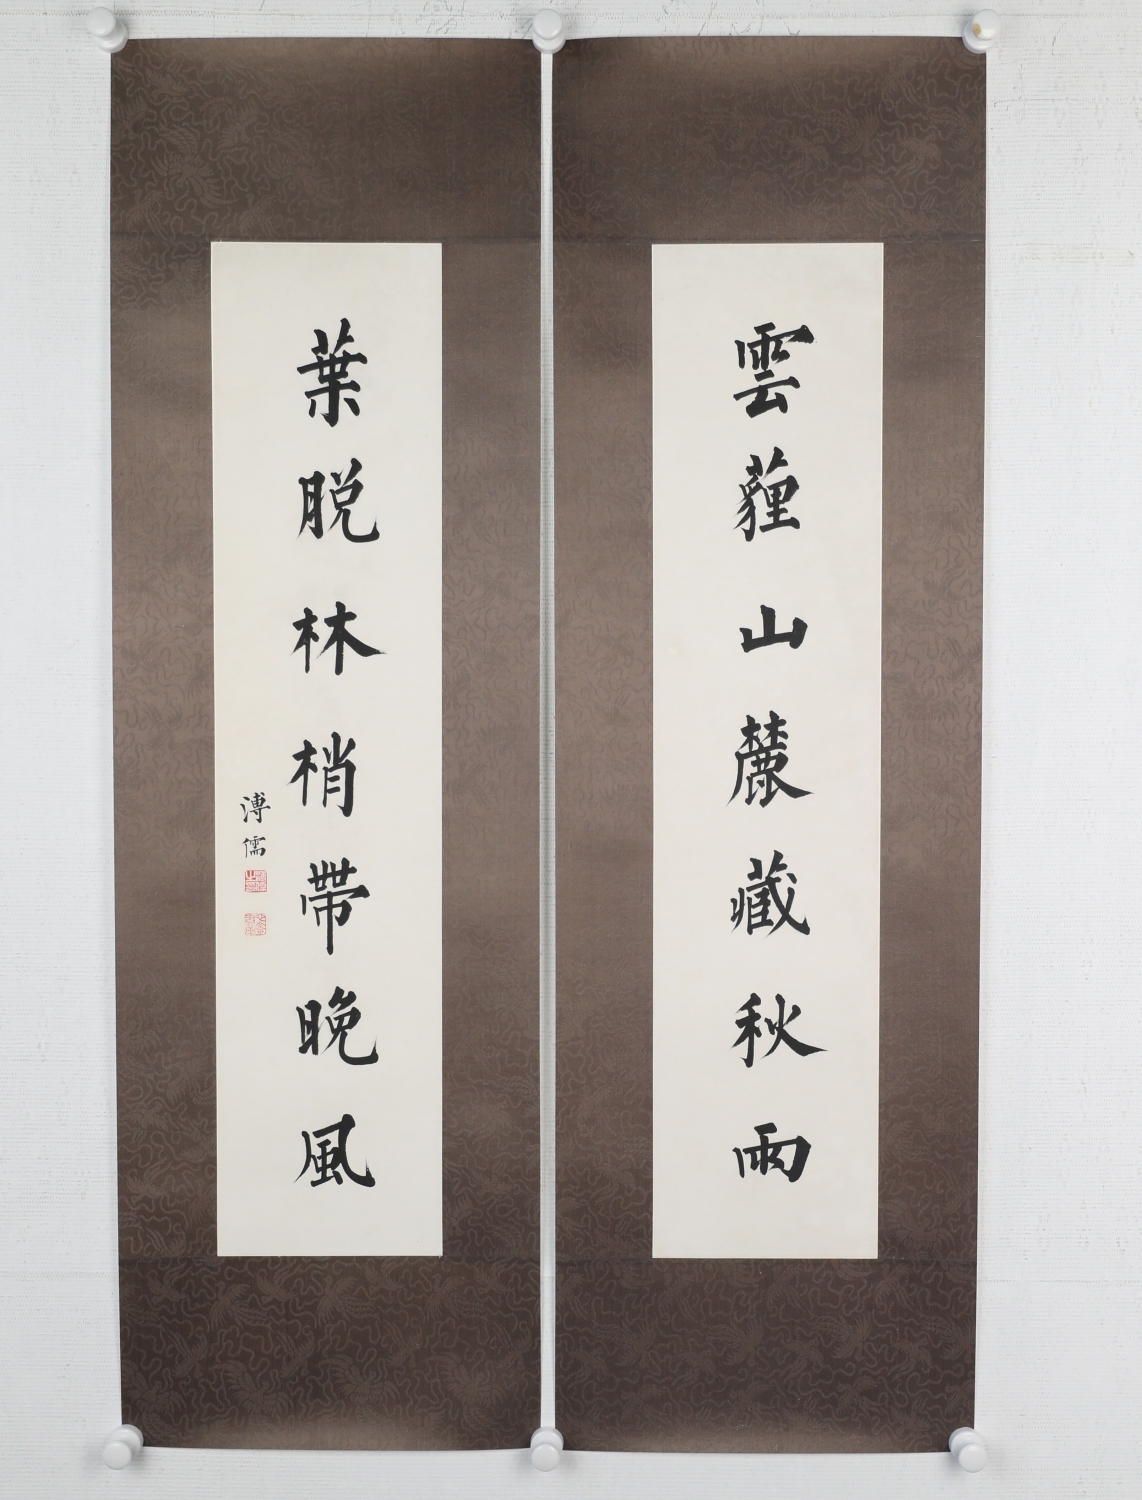 雲薶山麓藏秋雨
葉脱林梢帶晚風
溥儒